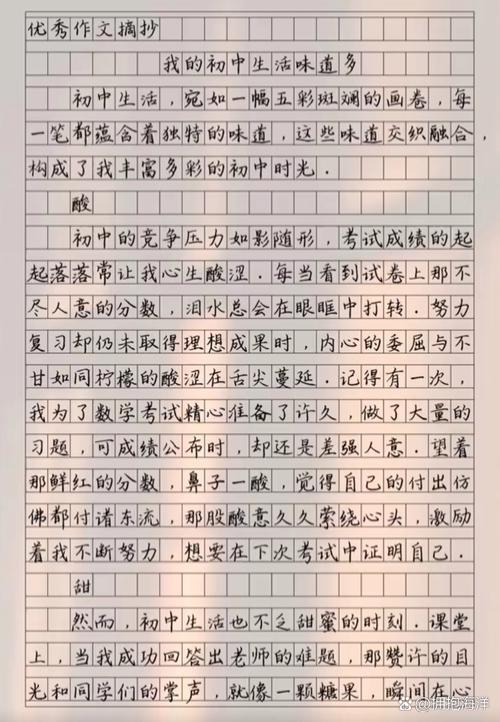 优秀作文摘抄
我的初中生活味道多
初中生活,宛如一幅五彩斑斓的画卷,每
一笔都蕴含着独特的味道,这些味道交织融合,
构成了我丰富多彩的初中时光.
酸
初中的竞争压力如影随形,考试成绩的起
起落落常让我心生酸涩.每当看到试卷上那不
尽人意的分数,泪水总会在眼眶中打转.努力
复习却仍未取得理想成果时,内心的委屈与不
甘如同柠檬的酸涩在舌尖蔓延.记得有一次,
我为了数学考试精心准备了许久,做了大量的
习题,可成绩公布时,却还是差强人意.望着
那鲜红的分数,鼻子一酸,觉得自己的付出仿
佛都付诸东流,那股酸意久久萦绕心头,激励
着我不断努力,想要在下次考试中证明自己.
甜
然而,初中生活也不乏甜蜜的时刻.课堂
上,当我成功回答出老师的难题,那赞许的目
光和同学们的掌声,就像一颗糖果,瞬间在心
@拥抱海洋